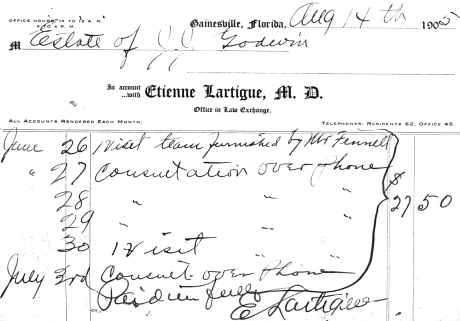 OFFICE HOURS 10 TO 12 A. M.
2 TO 4 P. M.
Gainesville, Florida, Aug 14th 1905
M Estate of J J Godwin
In account
...with Etienne Lartigue, M. D.
Office in Law Exchange.
ALL ACCOUNTS RENDERED EACH MONTH. TELEPHONES: RESIDENCE 62, OFFICE 45.
June 26 1 visit team furnished by Mr Fennell
" 27 Consultation over phone $
28 " " " 27 50
29 " " "
30 1 visit
July 3rd Consult over Phone
Paid in full
E Lartigue